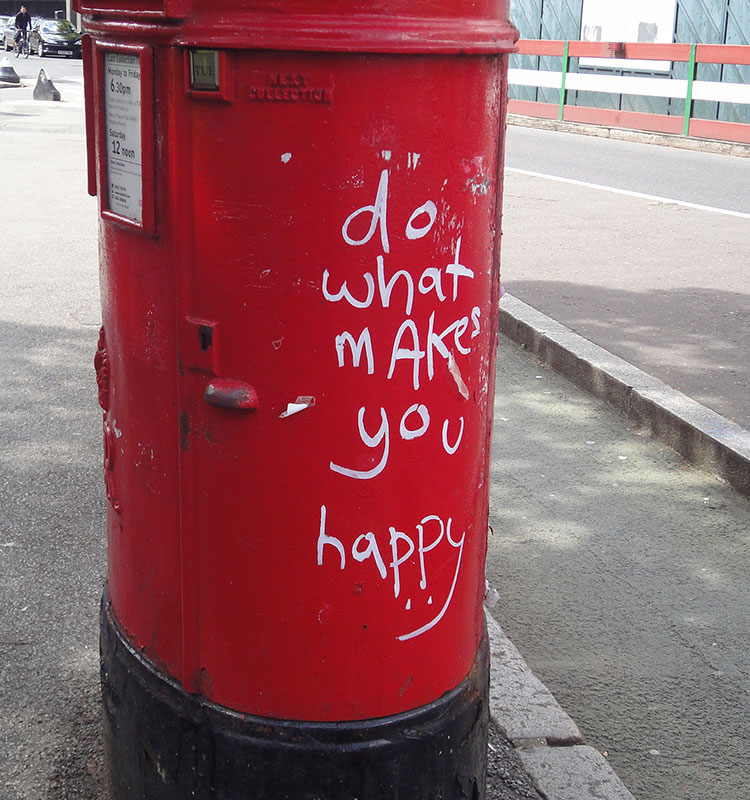 Last Collection
Monday to Friday
6.30pm
Saturday
12 noon
TUE
NEXT
COLLECTION
do
what
mAkes
you
happy